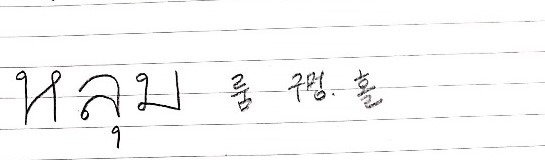 หลุม 룸 구멍. 홀